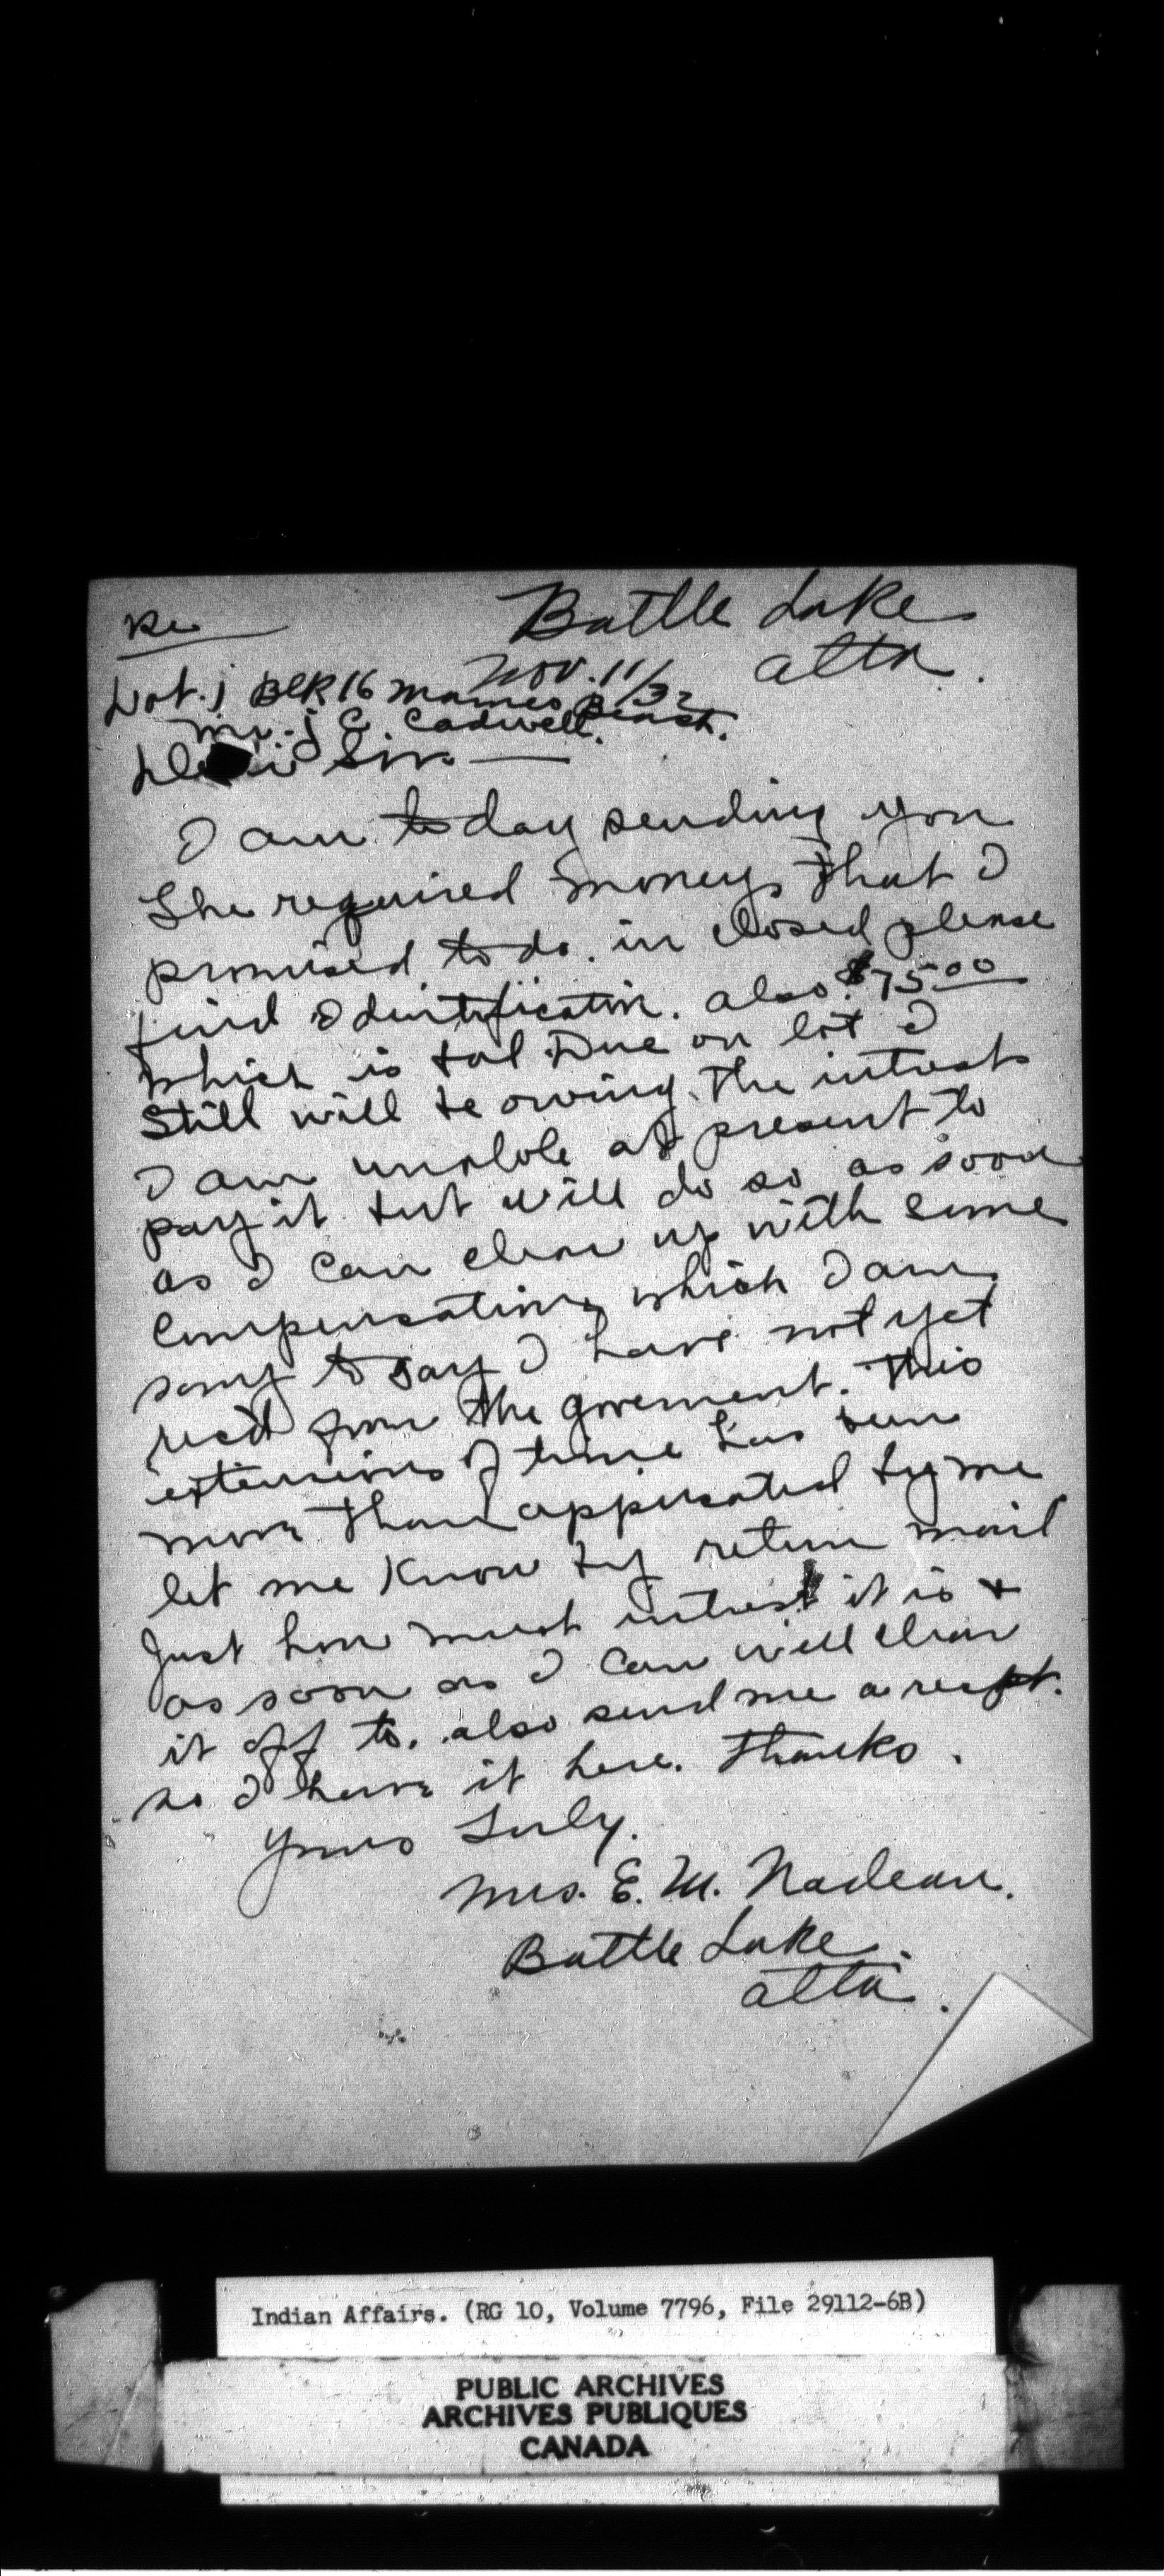 Battle Lake
Re
Alta.
Nov. 11/32
Lot. j Blk 16 Mameo Beach.
Mr. J C. Cadwell.
Sir
I am today sending you
the required money, that I
promised to do. in closed please
find Identification. also $75.00
which is bal Due on lot I
still will be owing. The intrest
I am unable at present to
pay it but will do so as soon
as I can clear up with some
Compensation, which I am
sorry to say I have not yet
recd from the goverment. This
extensions of time has been
more than appreciated by me
let me know by return mail
just how much intrest it is +
as soon as I can will clear
it off to. also send me a recpt.
so I have it here. Thanks.
yours Truly.
Mrs. E. M. Nadeau.
Battle Lake.
Alta.
Indian Affairs. (RG 10, Volume 7796, File 29112-6B)
PUBLIC ARCHIVES
ARCHIVES PUBLIQUES
CANADA